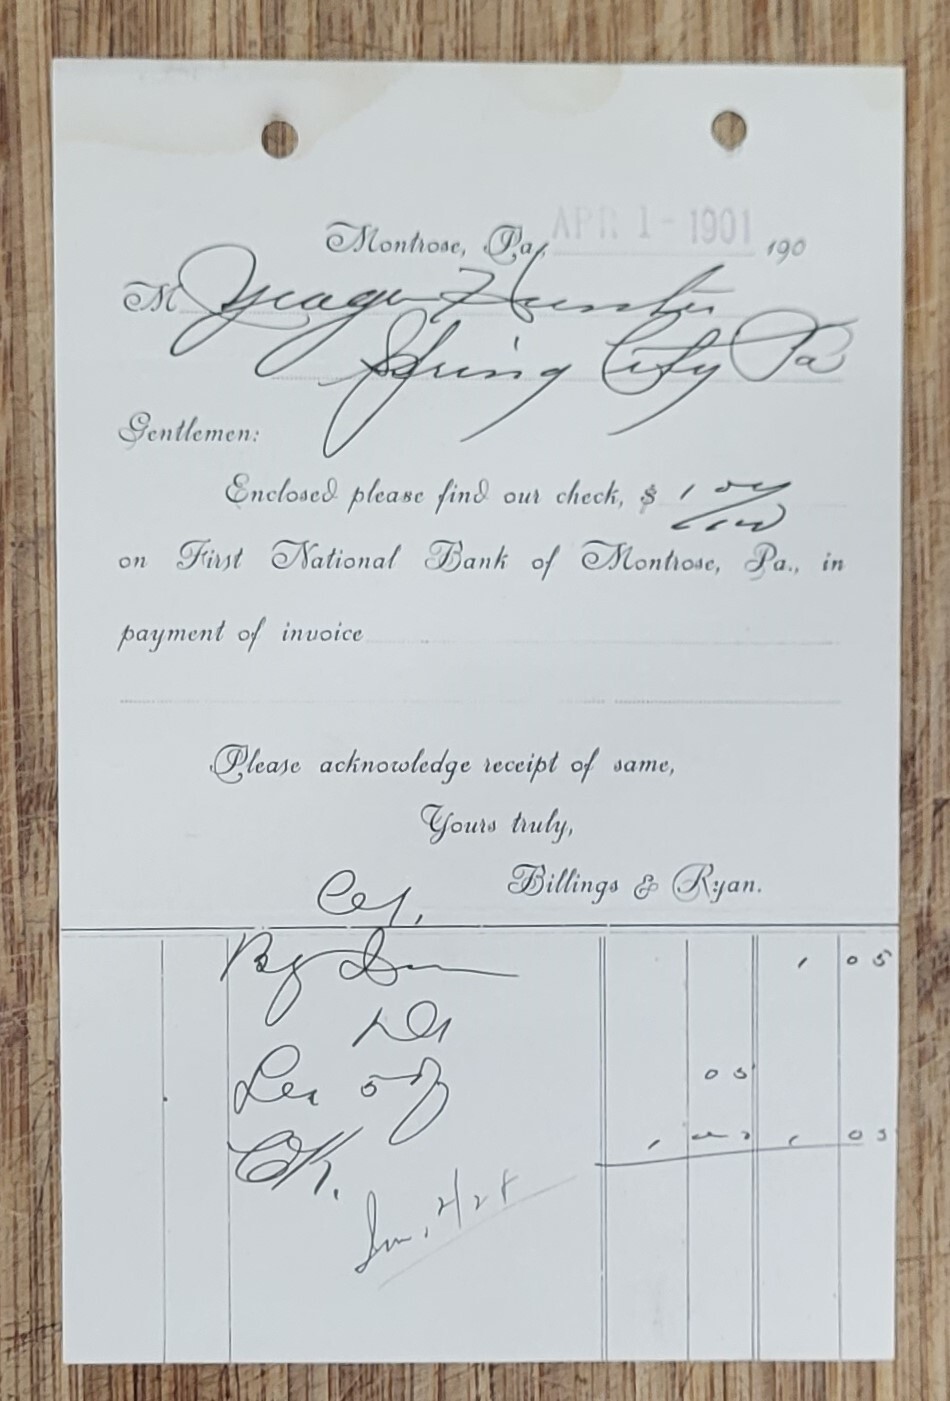 Montrose, Pa. APR 1 - 1901 190
M Yeager Hunter
Spring City Pa
Gentlemen:
Enclosed please find our check, $ 1
on First National Bank of Montrose, Pa., in
payment of invoice
Please acknowledge receipt of same,
Yours truly,
Billings & Ryan.
By 1 05
Les 5 05
OK. 1 1 05
2/28